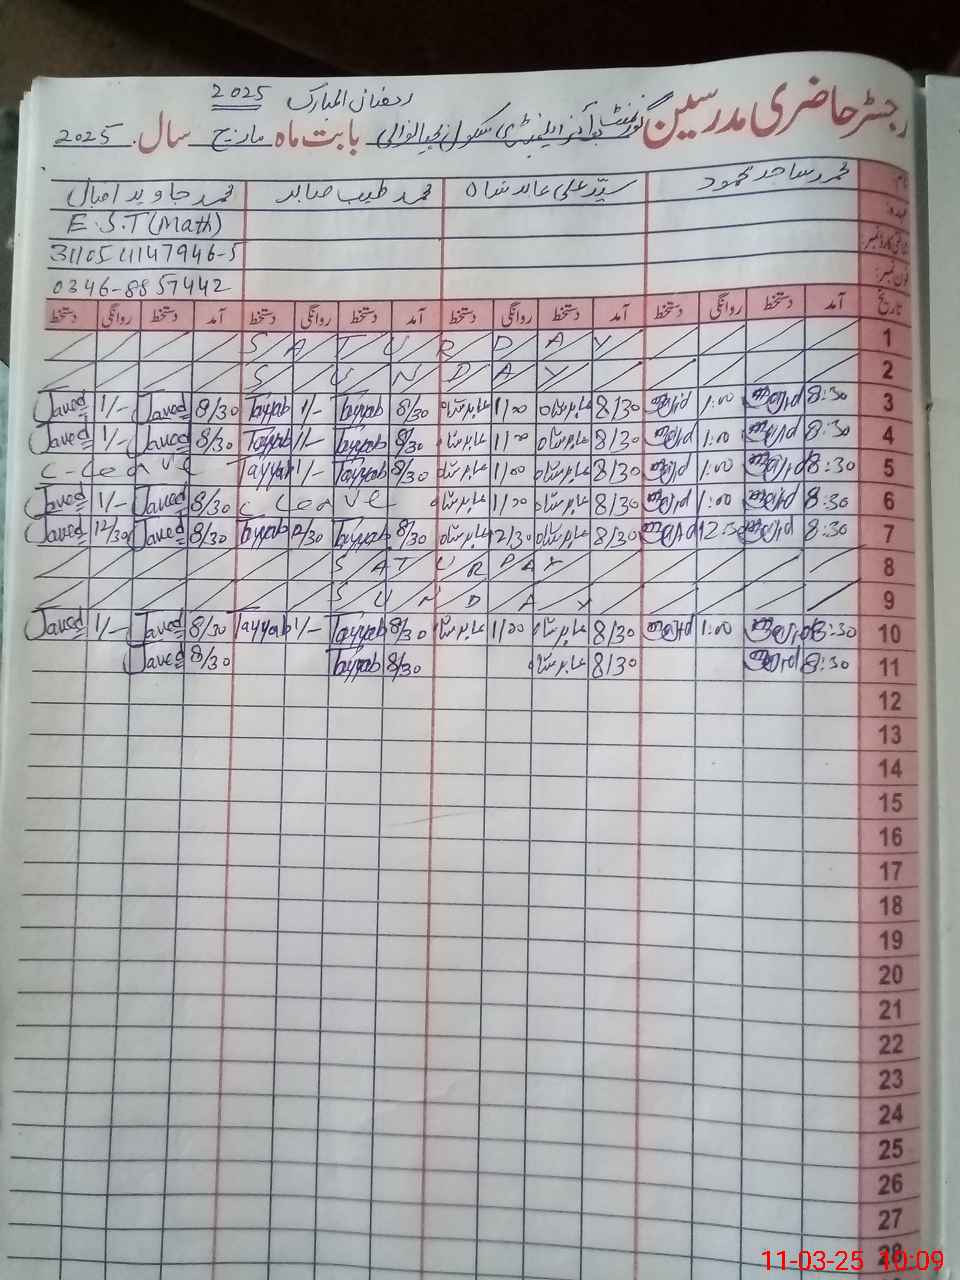 رمضان المبارک 2025
رجسٹر حاضری مدرسین گورنمنٹ بوائز ایلیمنٹری سکول بابت ماہ مارچ سال 2025
نام محمد ساجد محمود سیّد علی عابد شاہ محمد طیب صابر محمد جاوید اقبال
عہدہ: E.S.T (Math)
شناختی کارڈ نمبر:
فون نمبر: 0346-8857442
تاریخ آمد دستخط روانگی دستخط آمد دستخط روانگی دستخط آمد دستخط روانگی دستخط آمد دستخط روانگی دستخط
1 SATURDAY
2 SUNDAY
3 8:30 1:00 8/30 عابد شاہ 1/00 عابد شاہ 8/30 Tayyab 1/- Tayyab 8/30 Javed 1/- Javed
4 8:30 1:00 8/30 عابد شاہ 1/00 عابد شاہ 8/30 Tayyab 1/- Tayyab 8/30 Javed 1/- Javed
5 8:30 1:00 8/30 عابد شاہ 1/00 عابد شاہ 8/30 Tayyab 1/- Tayyab C-Leave
6 8:30 1:00 8/30 عابد شاہ 1/00 عابد شاہ C Leave 8/30 Javed 1/- Javed
7 8:30 8/30 عابد شاہ 12/30 عابد شاہ 8/30 Tayyab 12/30 Tayyab 8/30 Javed 12/30 Javed
8 SATURDAY
9 SUNDAY
10 8:30 1:00 8/30 عابد شاہ 1/00 عابد شاہ 8/30 Tayyab 1/- Tayyab 8/30 Javed 1/- Javed
11 8:30 8/30 عابد شاہ 8/30 Tayyab 8/30 Javed
12
13
14
15
16
17
18
19
20
21
22
23
24
25
26
27
28
11-03-25 10:09